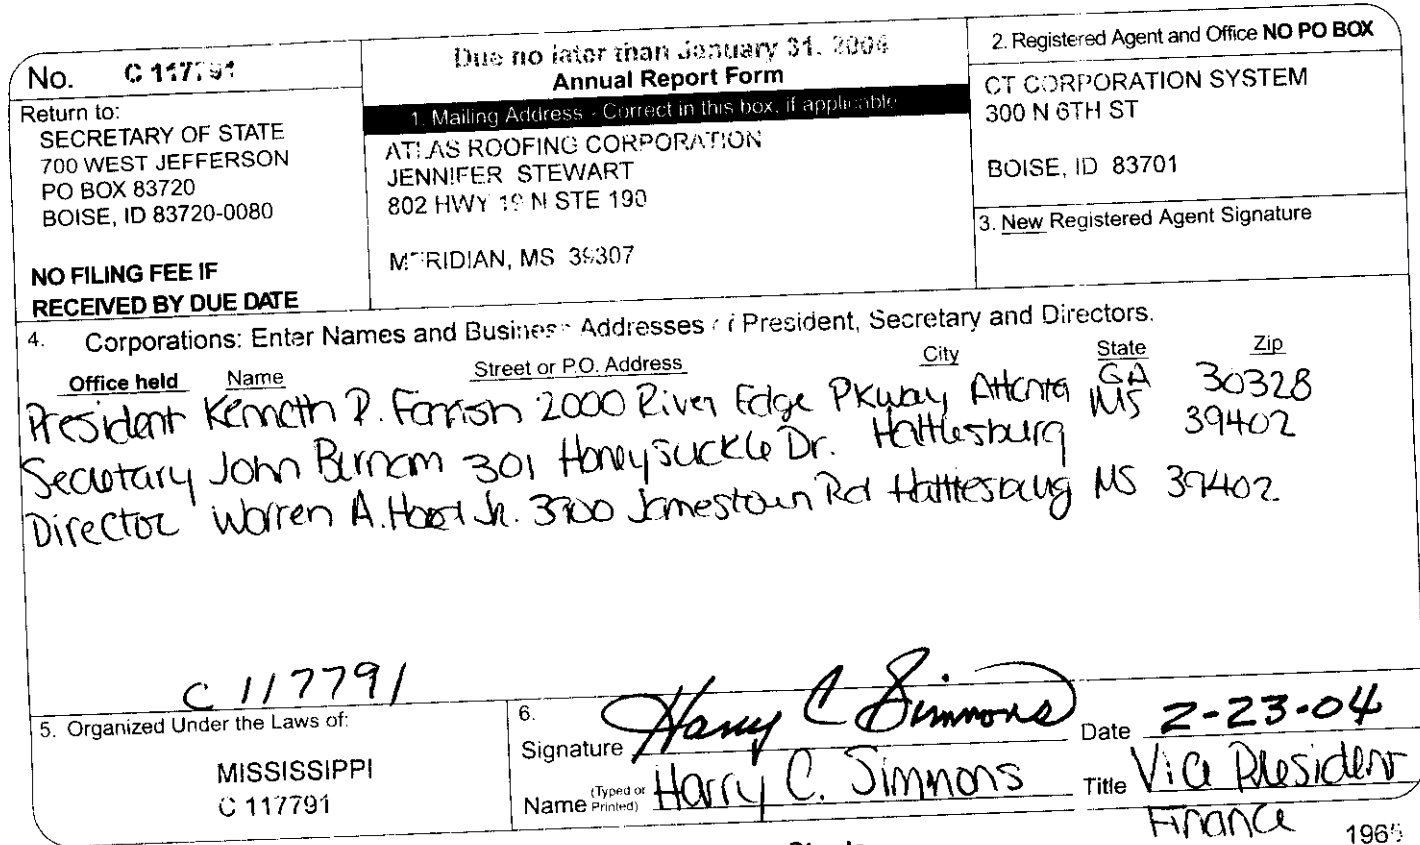 No. C 117791
Return to:
SECRETARY OF STATE
700 WEST JEFFERSON
PO BOX 83720
BOISE, ID 83720-0080
NO FILING FEE IF
RECEIVED BY DUE DATE
Due no later than January 31, 2004
Annual Report Form
1. Mailing Address - Correct in this box, if applicable
ATLAS ROOFING CORPORATION
JENNIFER STEWART
802 HWY 19 N STE 190
MERIDIAN, MS 39307
2. Registered Agent and Office NO PO BOX
CT CORPORATION SYSTEM
300 N 6TH ST
BOISE, ID 83701
3. New Registered Agent Signature
4. Corporations: Enter Names and Business Addresses of President, Secretary and Directors.
Office held Name Street or P.O. Address City State Zip
President Kenneth P. Farrish 2000 River Edge PKway Atlanta GA 30328
Secretary John Burnam 301 Honeysuckle Dr. Hattiesburg MS 39402
Director Warren A. Hood Jr. 3700 Jamestown Rd Hattiesburg MS 39402
C 117791
5. Organized Under the Laws of:
MISSISSIPPI
C 117791
6.
Signature Harry C Simmons Date 2-23-04
Name (Typed or Printed) Harry C. Simmons Title Vice President
Finance